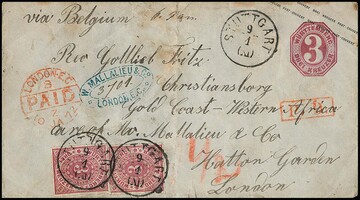 via Belgium
STUTTGART
9
1
WÜRTTEMBERG
3
DREI KREUZER
Rev Gottlieb Fritz
LONDON-E.C
PAID
W. MALLALIEU & CO
LONDON
Christiansborg
Gold Coast - Western Africa
P.D.
care of Mr. Mallalieu & Co
Hatton Garden
London
STUTTGART
9
1
STUTTGART
9
1